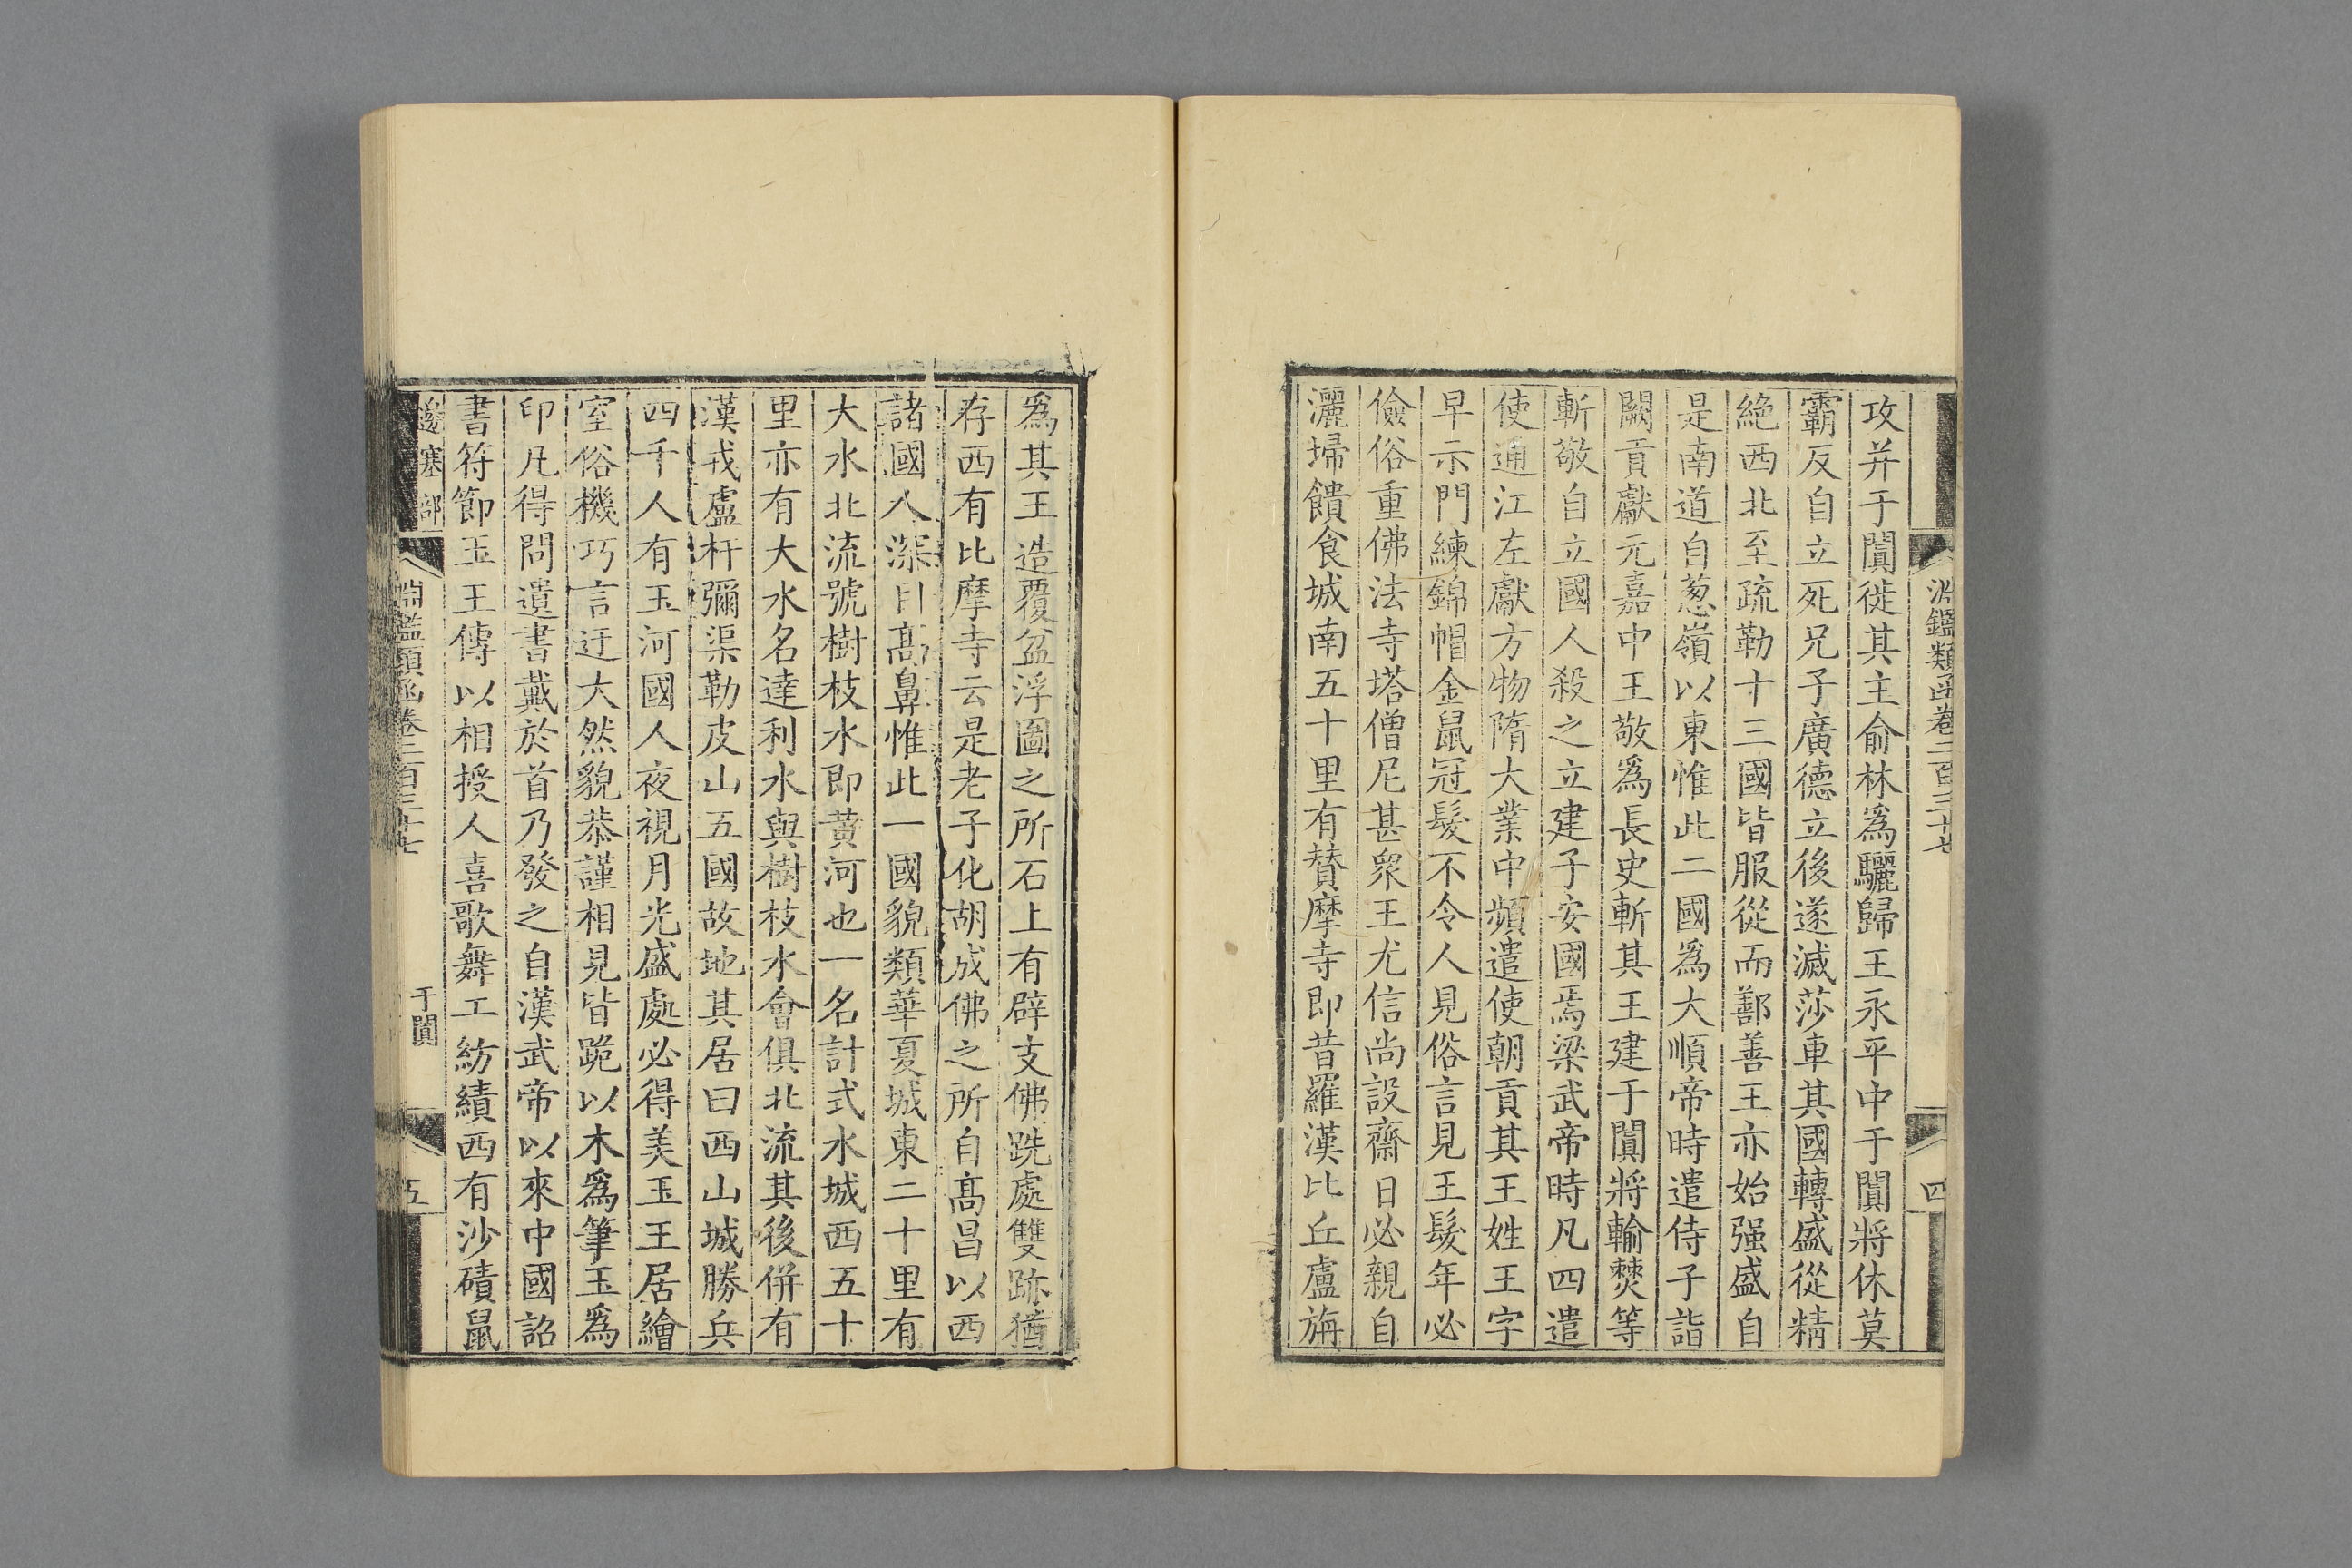 淵鑑類函卷二百三十七
四
攻并于闐徙其主俞林爲驪歸王永平中于闐將休莫
霸反自立死兄子廣德立後遂滅莎車其國轉盛從精
絶西北至疏勒十三國皆服從而鄯善王亦始强盛自
是南道自葱嶺以東惟此二國爲大順帝時遣侍子詣
闕貢獻元嘉中王敬爲長史斬其王建于闐將輸僰等
斬敬自立國人殺之立建子安國焉梁武帝時凡四遣
使通江左獻方物隋大業中頻遣使朝貢其王姓王字
早示門練錦帽金鼠冠髮不令人見俗言見王髮年必
儉俗重佛法寺塔僧尼甚衆王尤信尚設齋日必親自
灑埽饋食城南五十里有賛摩寺即昔羅漢比丘盧旃
爲其王造覆盆浮圖之所石上有辟支佛跣處雙跡猶
存西有比摩寺云是老子化胡成佛之所自髙昌以西
諸國人深目髙鼻惟此一國貌類華夏城東二十里有
大水北流號樹枝水即黄河也一名計式水城西五十
里亦有大水名達利水與樹枝水會俱北流其後併有
漢戎盧杆彌渠勒皮山五國故地其居曰西山城勝兵
四千人有玉河國人夜視月光盛處必得美玉王居繪
室俗機巧言迂大然貌恭謹相見皆跪以木爲筆玉爲
印凡得問遺書戴於首乃發之自漢武帝以來中國詔
書符節玉王傳以相授人喜歌舞工紡績西有沙磧鼠
邊塞部
淵鑑類函卷二百三十七
于闐
五